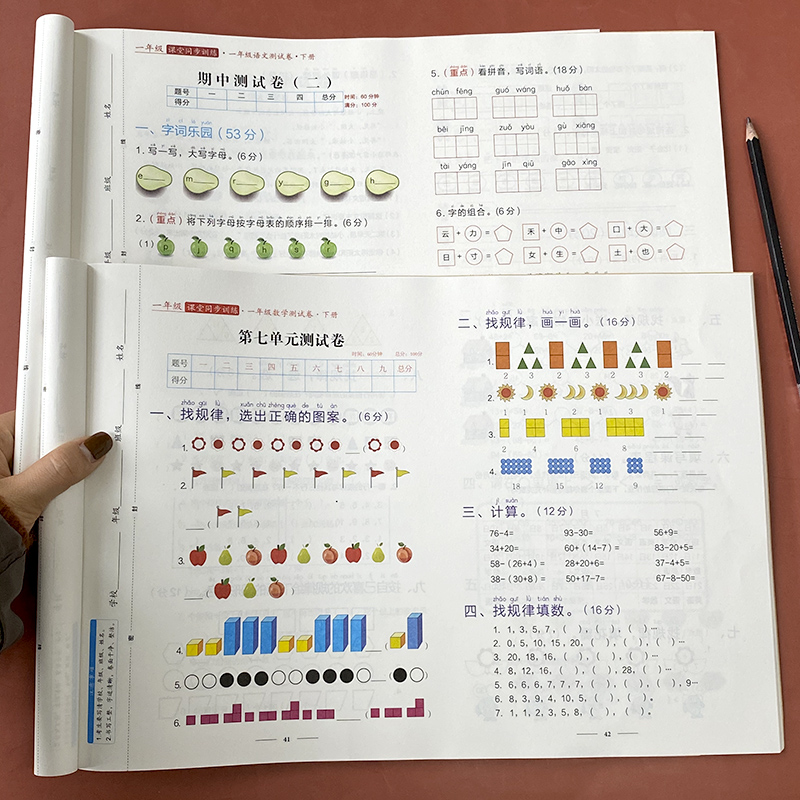 一年级 课堂同步训练 · 一年级语文测试卷·下册
期中测试卷(二)
题号 一 二 三 四 总分
得分
时间:60分钟
满分:100分
一、字词乐园(53分)
1.写一写,大写字母。(6分)
e m r y g h
2.(重点)将下列字母按字母表的顺序排一排。(6分)
(1) p j q h s r
5.(重点)看拼音,写词语。(18分)
chūn fēng guó wáng huǒ bàn
běi jīng zuǒ yòu gù xiāng
tài yáng jīn qiū gāo xìng
6.字的组合。(6分)
云+力= 禾+中= 口+大=
日+寸= 女+生= 土+也=
姓名
班级
一年级 课堂同步训练 · 一年级数学测试卷·下册
第七单元测试卷
时间:60分钟 总分:100分
题号 一 二 三 四 五 六 七 八 九 总分
得分
zhǎo guī lǜ xuǎn chū zhèng què de tú àn
一、找规律,选出正确的图案。(6分)
1. ( )
2.
( )
3.
( )
4. ( )
5. ( )
6. ( )
41
zhǎo guī lǜ huà yi huà
二、找规律,画一画。(16分)
1.
2 2 2 3 2 3 2
2.
1 1 1 2 1 3 1
3.
2 4 6 8
4.
18 15 12 9
jì suàn
三、计算。(12分)
76-4= 93-30= 56+9=
34+20= 60+(14-7)= 83-20+5=
58-(26+4)= 28+20+6= 37-4+5=
38-(30+8)= 50+17-7= 67-8-50=
zhǎo guī lǜ tián shù
四、找规律填数。(16分)
1. 1,3,5,7,( ),( ),( )…
2. 0,5,10,15,20,( ),( ),( )…
3. 20,18,16,( ),( ),( )…
4. 8,12,16,( ),( ),28,( )。
5. 6,6,6,7,7,7,( ),( ),( ),9…
6. 8,3,9,4,10,5,( ),( )。
7. 1,1,2,3,5,8,( ),( ),( )。
42
姓名
班级
年级
学校
1.考生要写清学校、年级、班级、姓名。
2.书写工整,字迹清晰,卷面干净、整洁。